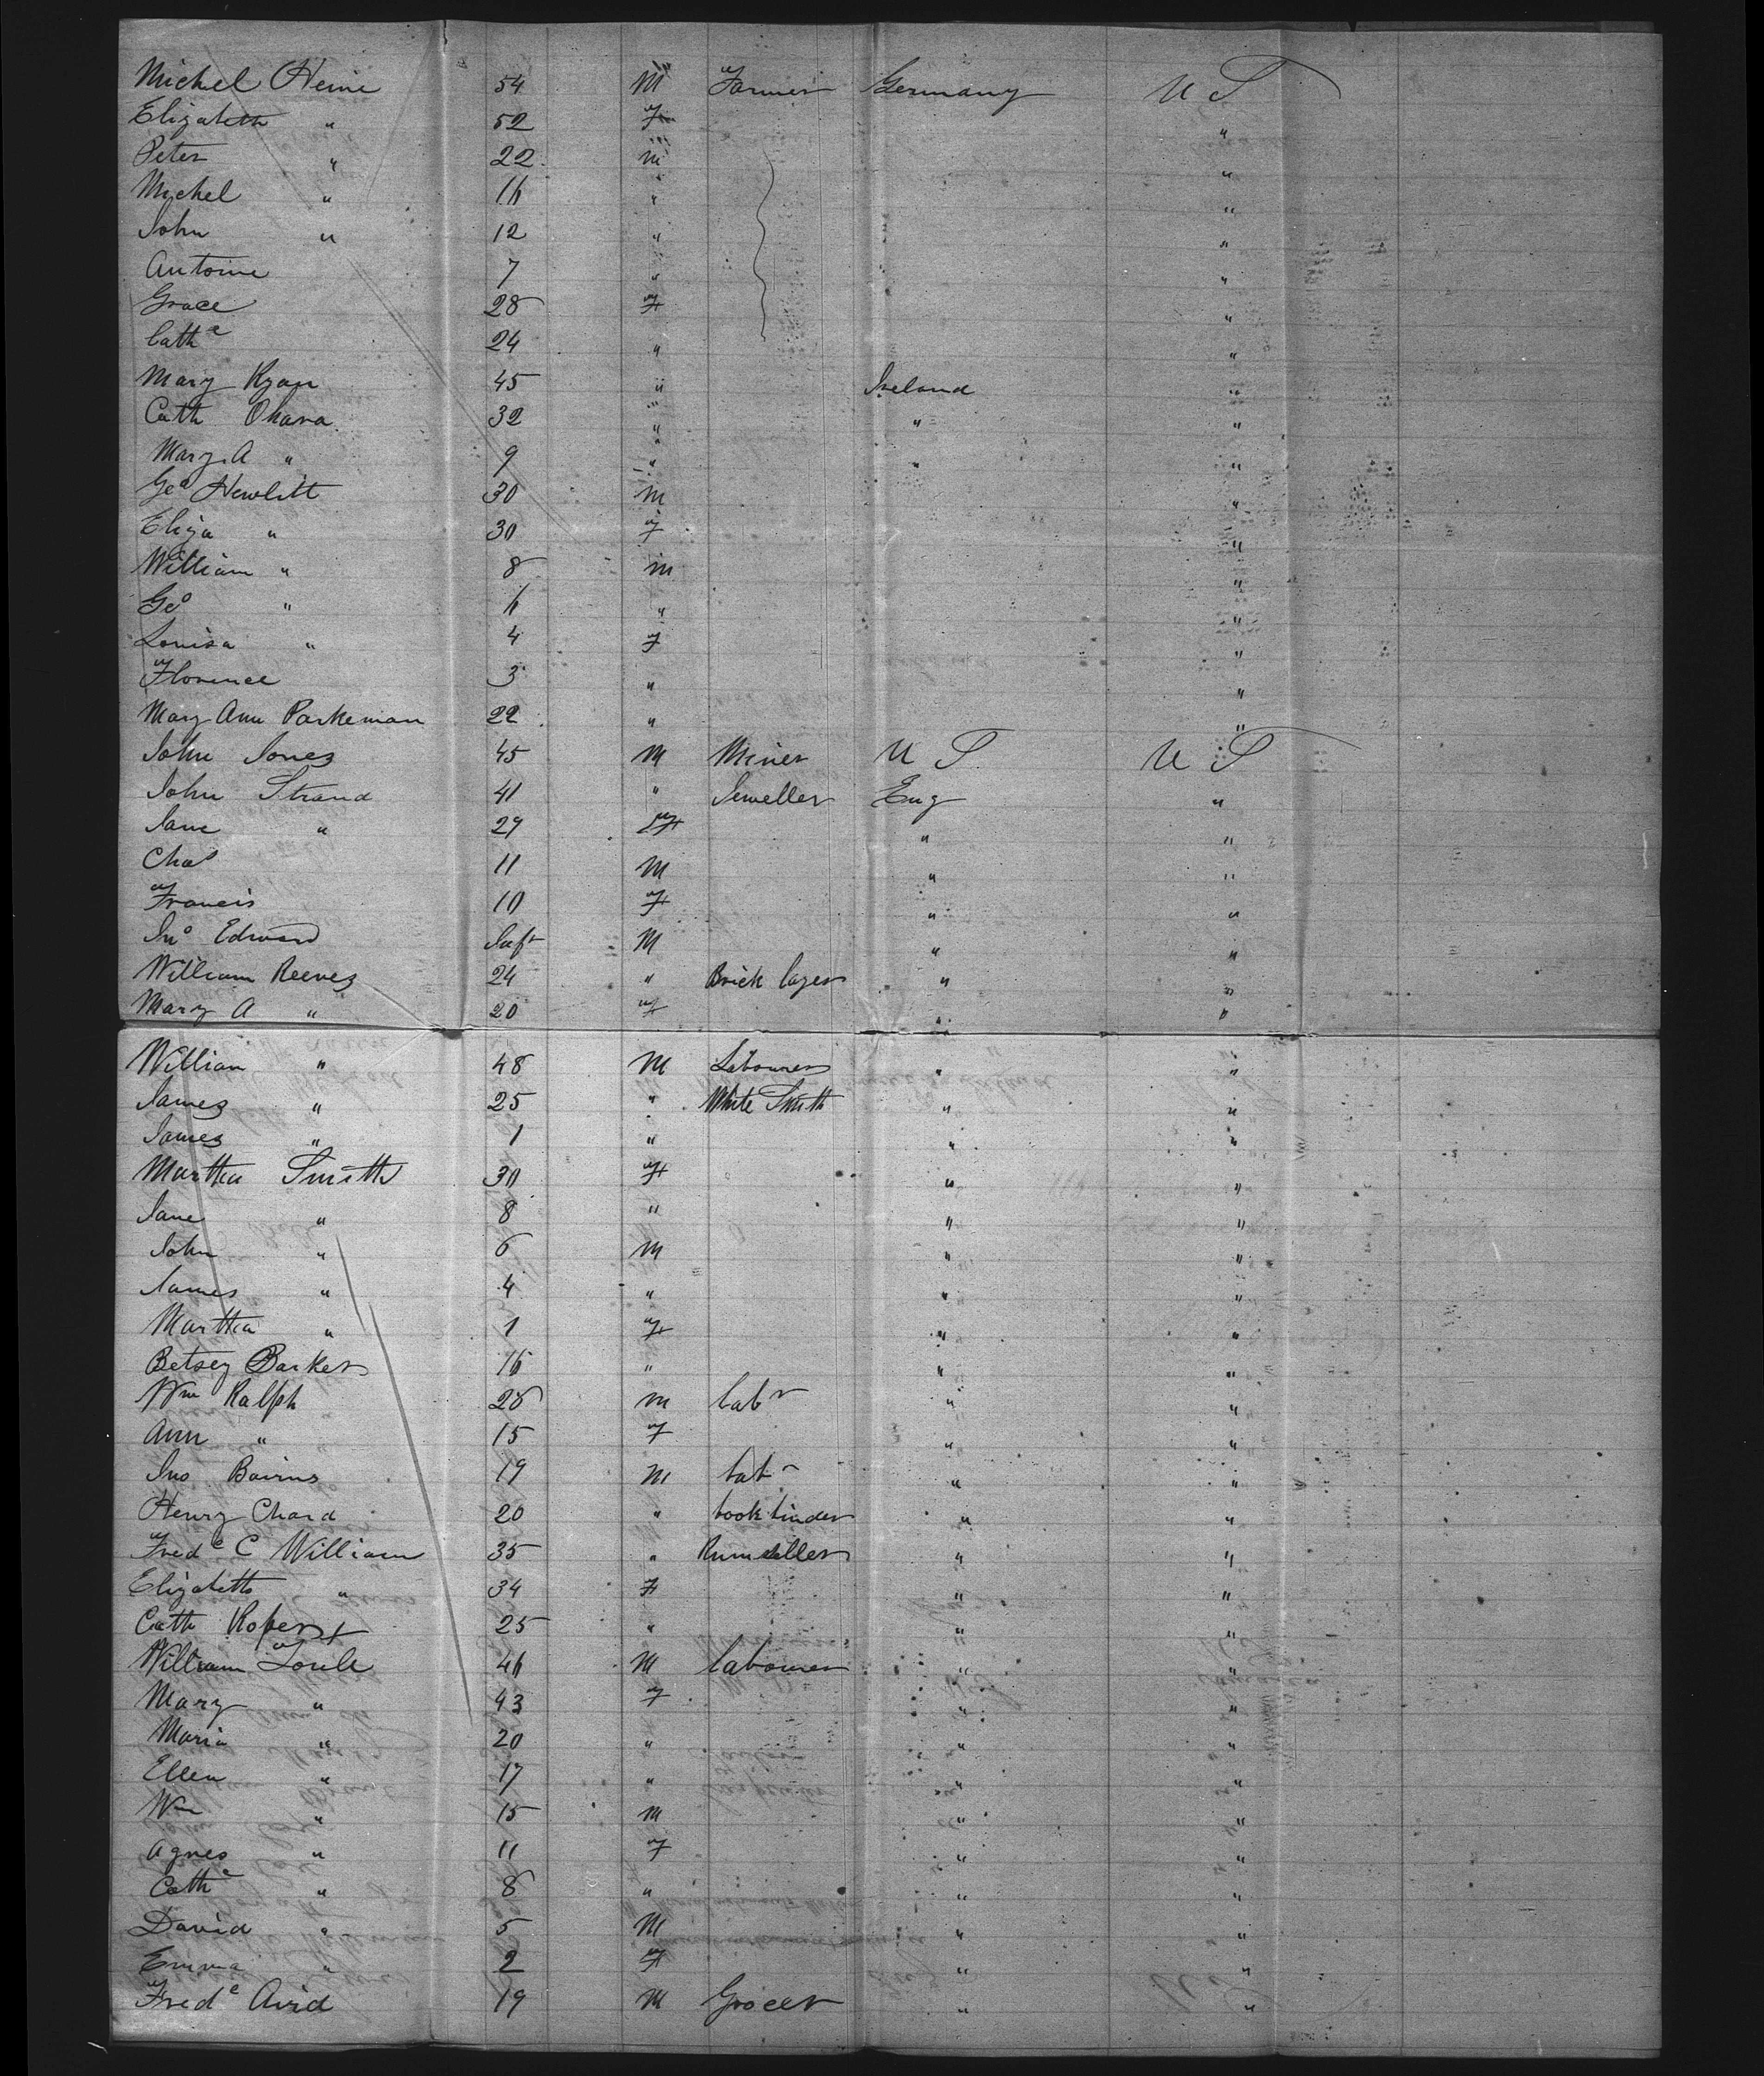 Michel Heine 54 M Farmer Germany U S
Elizabeth " 52 F "
Peter " 22 M "
Michel " 16 " "
John " 12 " "
Antoine 7 " "
Grace 28 F "
Cathe 24 " "
Mary Ryan 45 " Ireland "
Cath Ohara 32 " " "
Mary A " 9 " " "
Geo Hewlitt 30 M "
Eliza " 30 F "
William " 8 M "
Geo " 6 " "
Louisa " 4 F "
Florence 3 " "
Mary Ann Parkeman 22 " "
John Jones 45 M Miner U S U S
John Strand 41 " Jeweller Eng "
Jane " 29 F " "
Chas 11 M " "
Francis 10 F " "
Jno Edward Inft M " "
William Reeves 24 " Brick layer " "
Mary A " 20 F " "
William " 48 M Labourer " "
James " 25 " White Smith " "
James " 1 " " "
Martha Smith 30 F " "
Jane " 8 " " "
John " 6 M " "
James " 4 " " "
Martha " 1 F " "
Betsey Barker 16 " " "
Wm Ralph 28 M Labr " "
Ann " 15 F " "
Jno Bairns 19 M Labr " "
Henry Chard 20 " bookbinder " "
Frede C William 35 " Rumseller " "
Elizabeth " 34 F " "
Cath Roper + 25 " " "
William 46 M Labourer " "
Mary " 43 F " "
Maria " 20 " " "
Ellen " 17 " " "
Wm " 15 M " "
Agnes " 11 F " "
Cathe " 8 " " "
David " 5 M " "
Emma " 2 F " "
Frede Avid 19 M Grocer " "